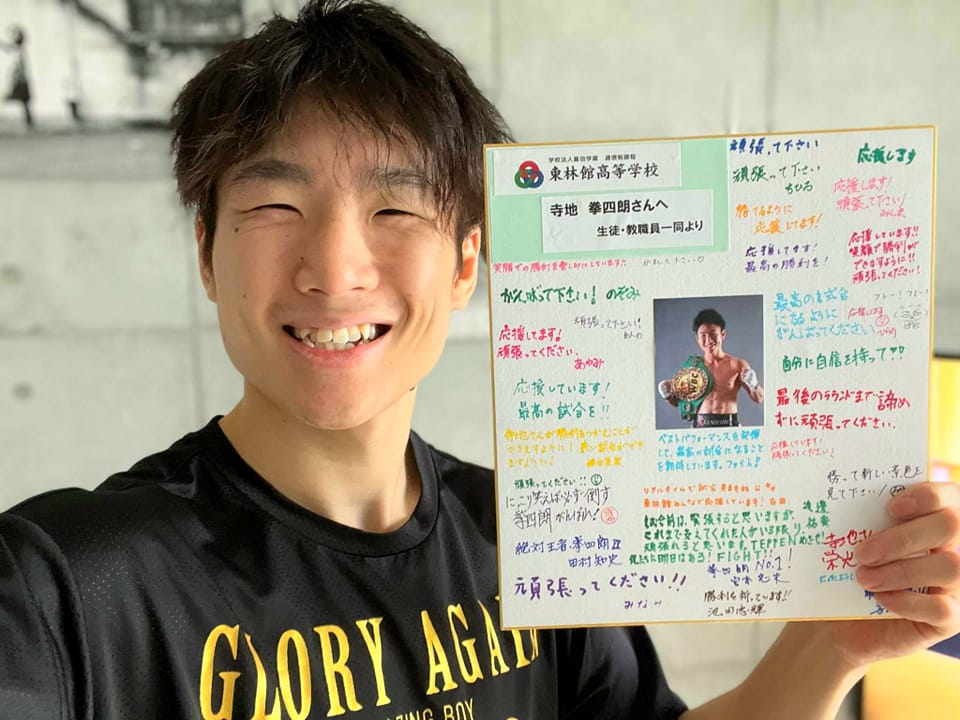 学校法人喜田学園 通信制課程
東林館高等学校
寺地 拳四朗さんへ
生徒・教職員一同より
頑張って下さい
頑張って下さい
ちひろ
応援します
応援します!
頑張って下さい!
勝てるように
応援してます!
応援してます!
最高の勝利を!
応援しています!!
笑顔で勝利が
できますように!!
頑張ってください!
笑顔での勝利を楽しみにしています
がんばって下さい! のぞみ
頑張って下さい!
応援します!
頑張ってください.
あゆみ
応援しています!
最高の試合を!!
最高の試合
になるように
がんばってください
フレー!フレー!
自分に自信を持って
最後のラウンドまで諦め
ずに頑張ってください.
WBC
ベストパフォーマンスを発揮
して、最高の試合になること
を期待しています。ファイト!
応援しています!
頑張ってください!
頑張ってください!!
にっこり笑えば必ず倒す
拳四朗がんばれ!
絶対王者・拳四朗
田村知史
頑張ってください!!
みなみ
リアルタイムで試合見ますね
東林館みんなで応援しています! 吉田
試合前は、緊張すると思いますが、
これまで支えてくれた人がいる限り、
頑張れると思います。TEPPENめざせ!
明日はある! FIGHT!!
拳四朗 No.1!
勝利を祈っています!!
池田忠輝
勝って新しい景色を
見て下さい!
渡邊
GLORY AGAIN
AMAZING BOY